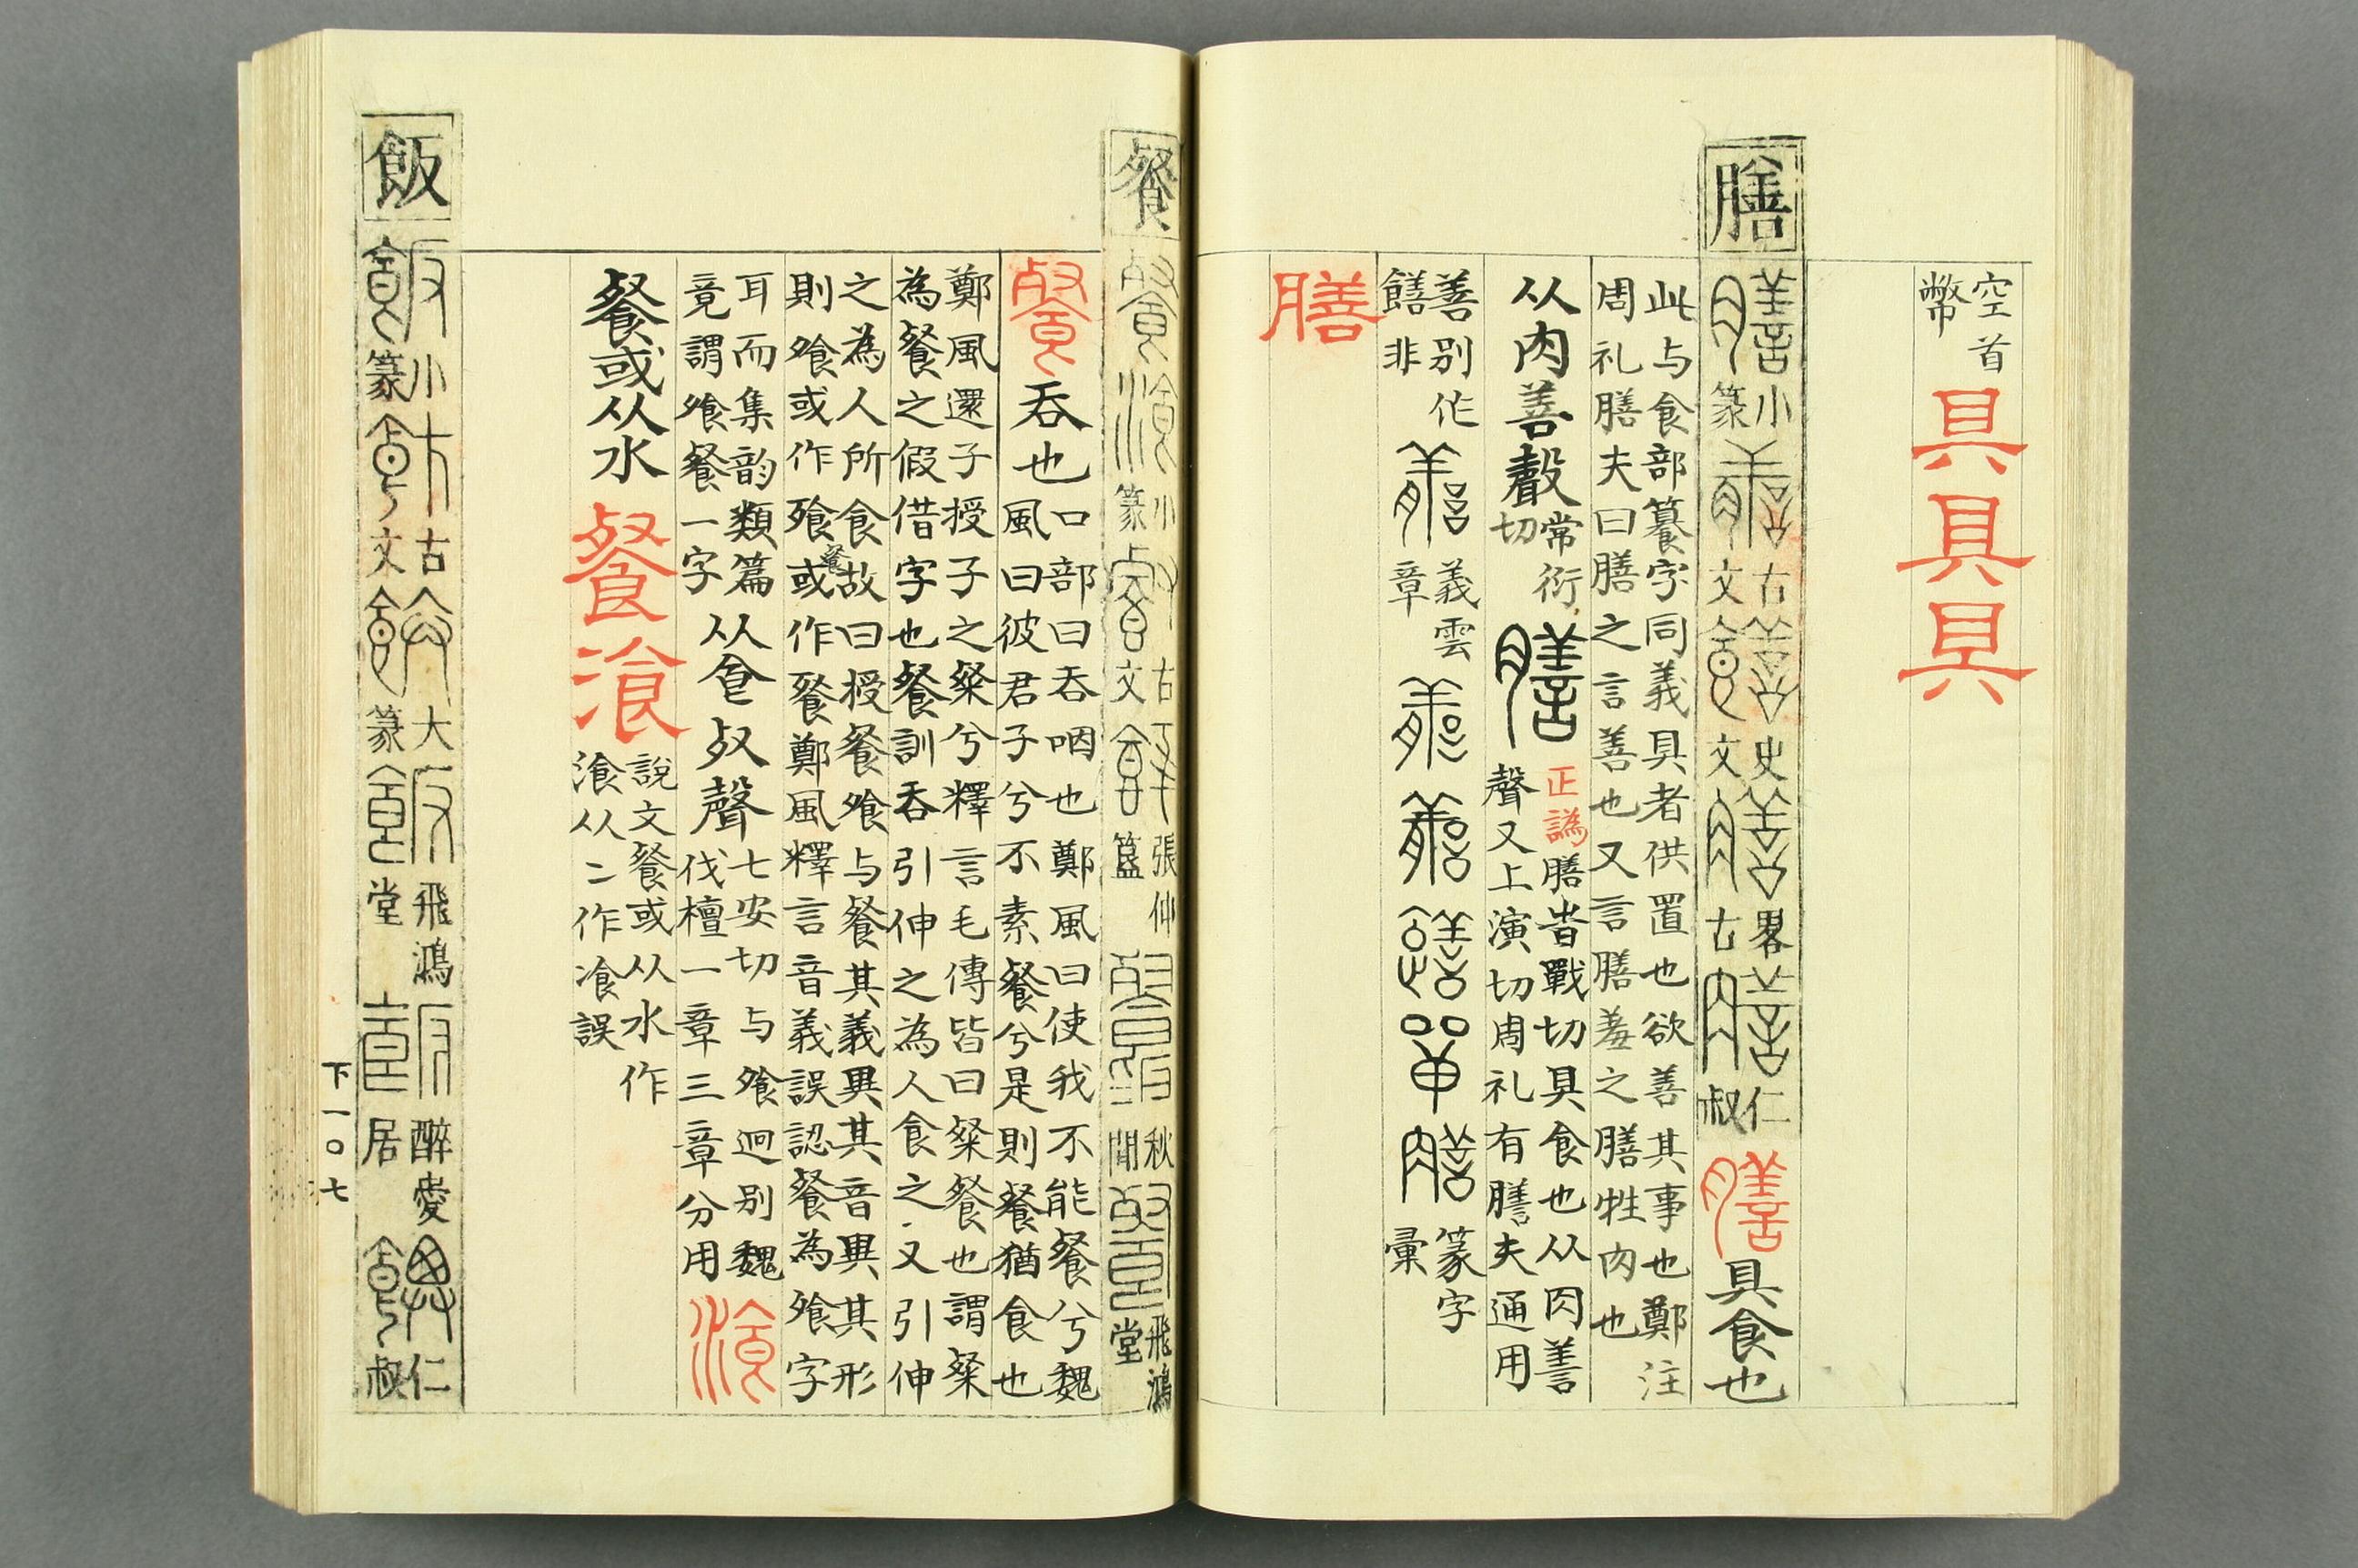 空首
幣
具具具
膳
小篆
古文
史文
畧古
仁叔
膳具食也
此与食部籑字同義具者供置也欲善其事也鄭注
周礼膳夫曰膳之言善也又言膳羞之膳牲肉也
从肉善聲
常衍
切
膳
正譌膳眘戰切具食也从肉善
聲又上演切周礼有膳夫通用
善別作
饍非
義雲
章
篆字
彙
膳
餐
小篆
古文
張仲簠
秋閒
飛鴻堂
餐吞也
口部曰吞咽也鄭風曰使我不能餐兮魏
風曰彼君子兮不素餐兮是則餐猶食也
鄭風還子授子之粲兮釋言毛傳皆曰粲餐也謂粲
為餐之假借字也餐訓吞引伸之為人食之又引伸
之為人所食故曰授餐飧与餐其義異其音異其形
則飧或作飱或餐作餮鄭風釋言音義誤認餐為飧字
耳而集韵類篇
竟謂飧餐一字
从食𣦼聲
七安切与飧迥別魏
伐檀一章三章分用
湌
餐或从水
餐湌
說文餐或从水作
湌从二作飡誤
飯
小篆
古文
大篆
飛鴻堂
醉愛居
仁叔
下一〇七